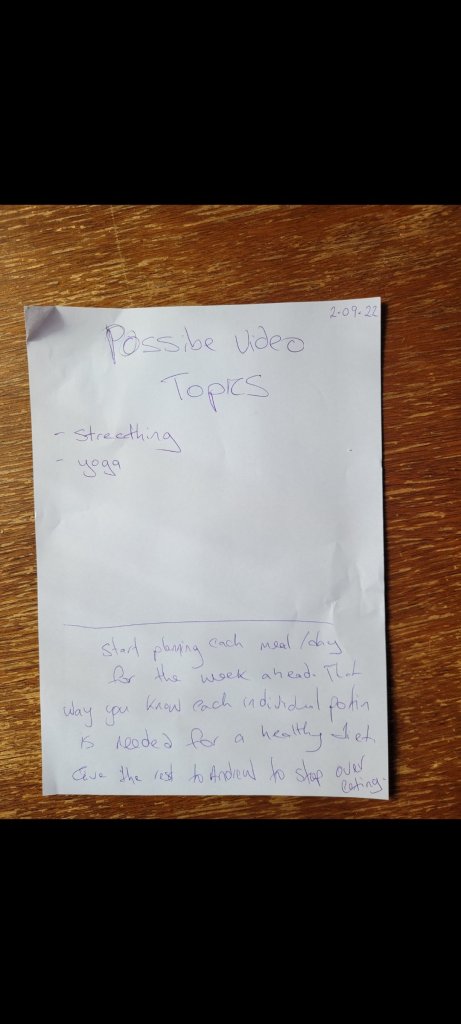 2.09.22
Possibe video
Topics
- streethhing
- yoga
Start planing each meal /day
for the week ahead. That
way you know each individual potin
is needed for a healthy diet.
Give the rest to Andrew to stop over
eating.